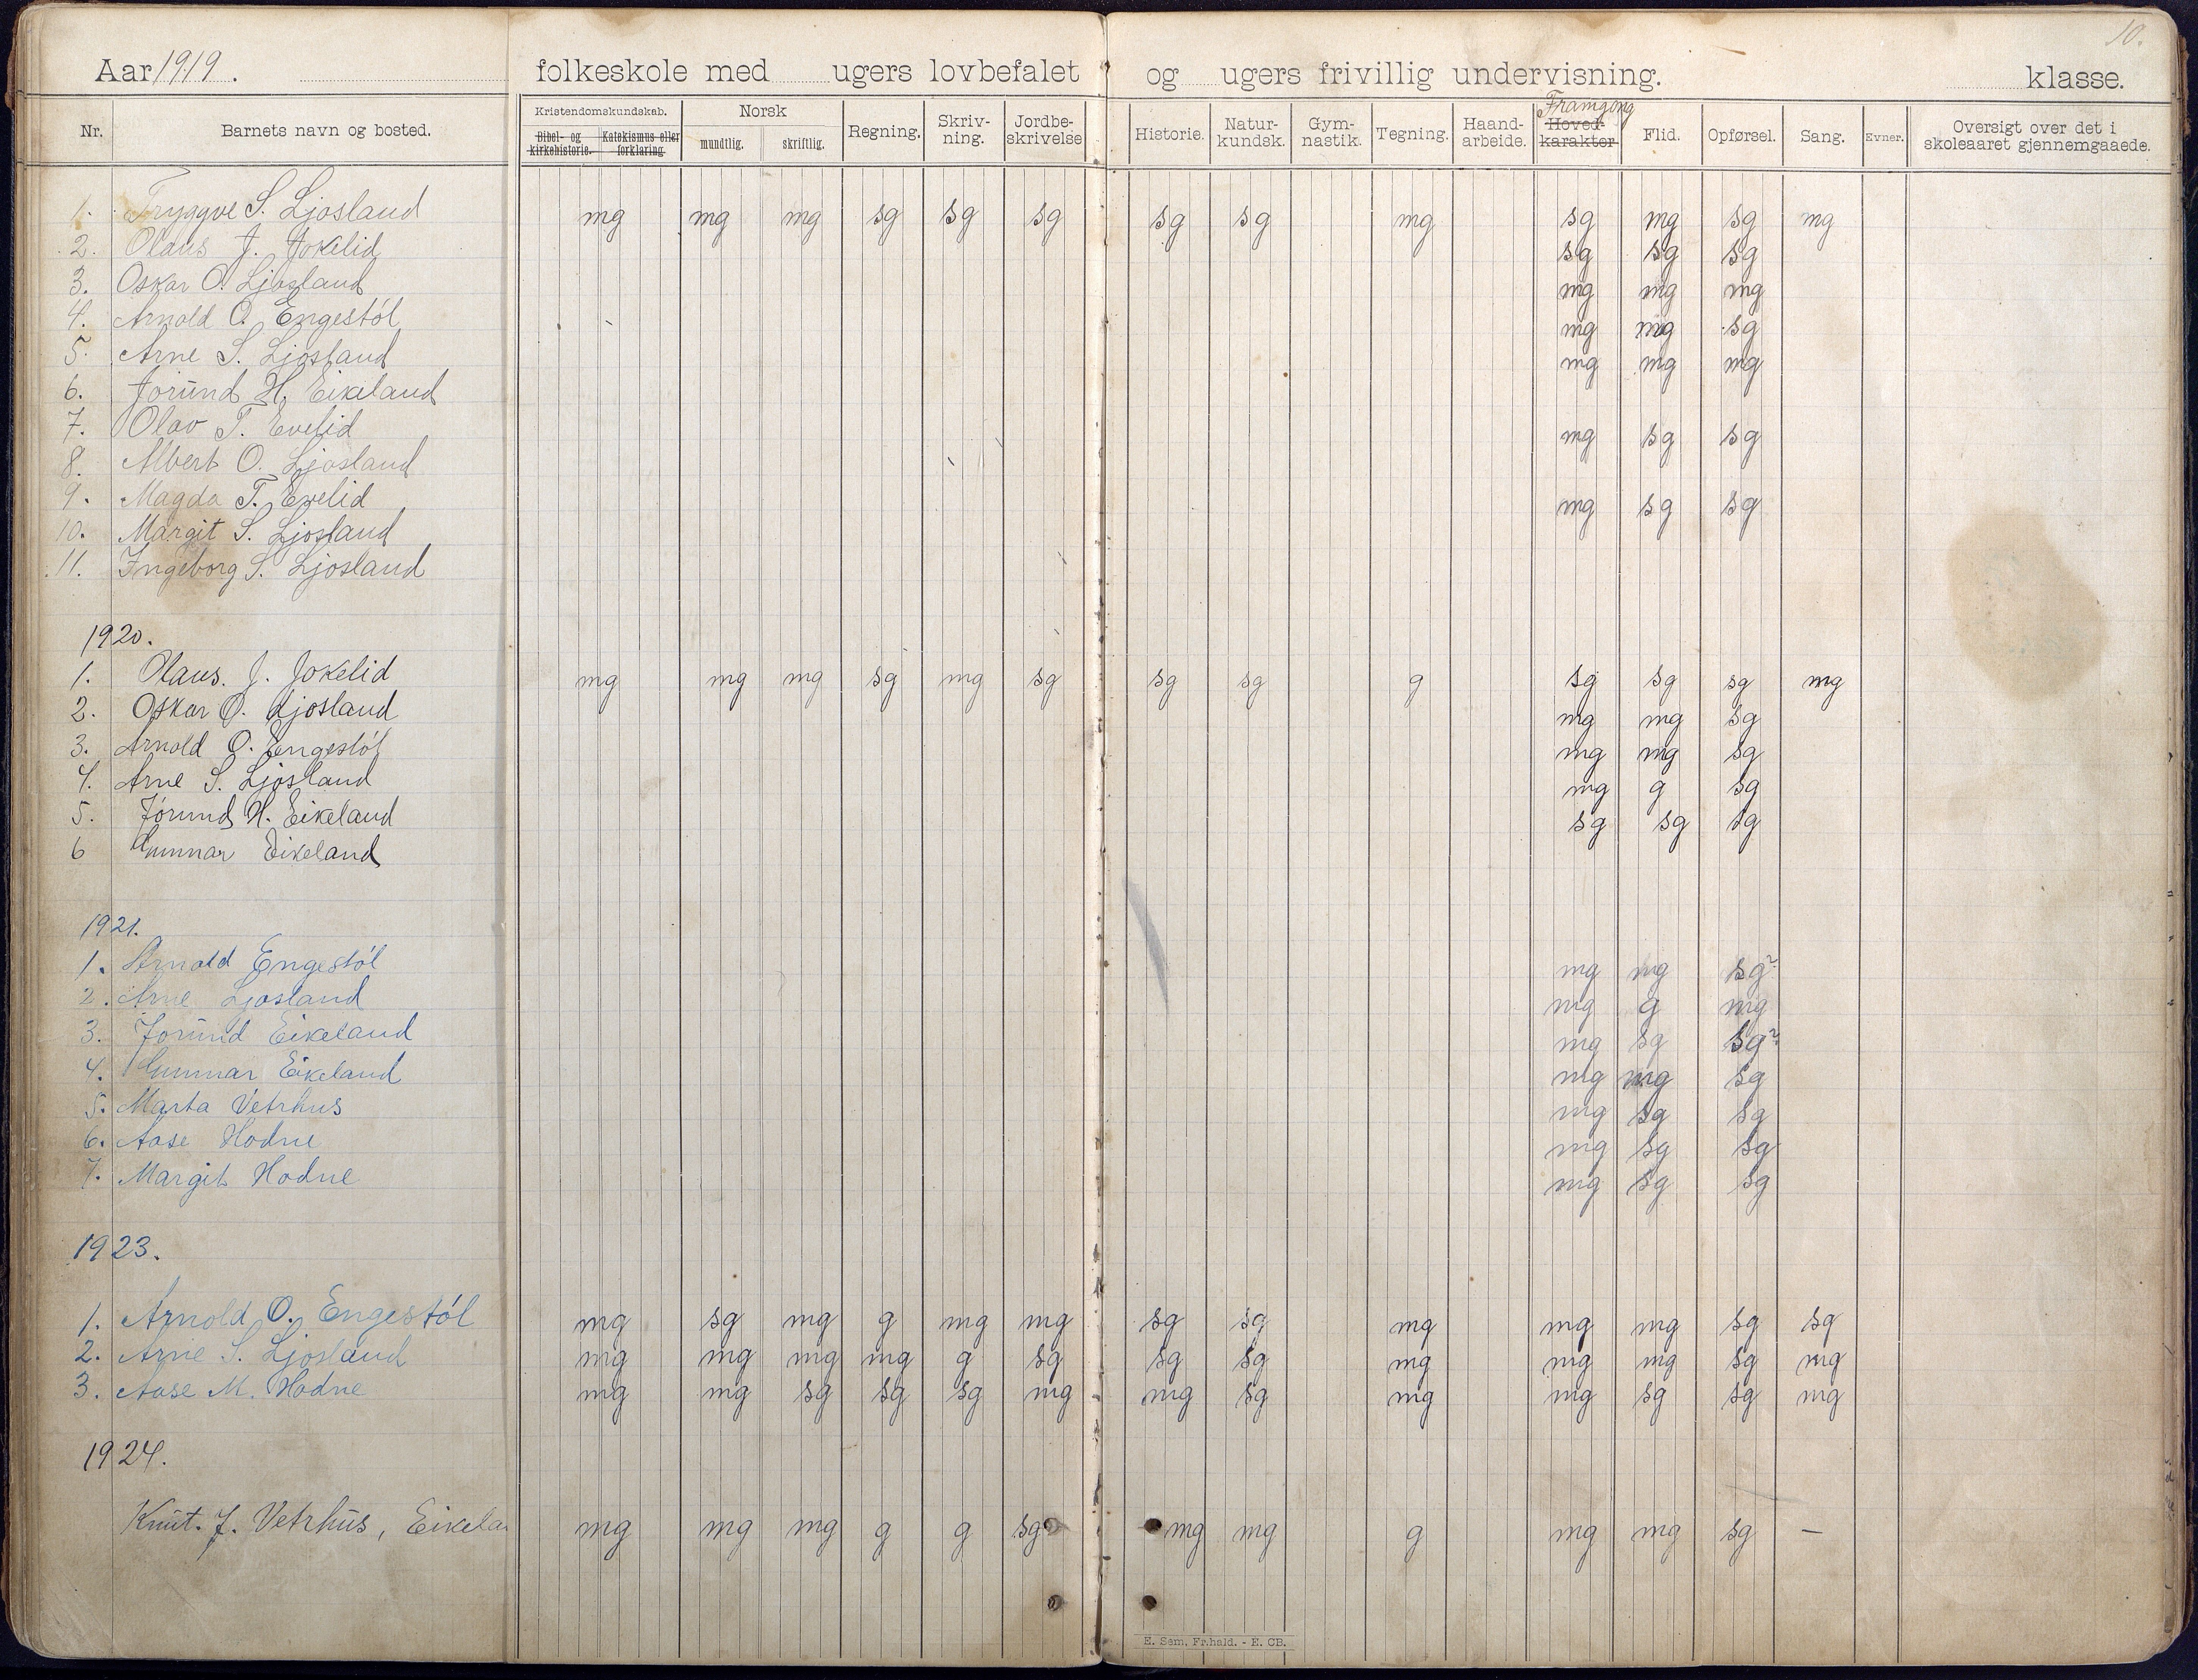 10.
Aar 1919. folkeskole med ugers lovbefalet og ugers frivillig undervisning. klasse.
Nr. Barnets navn og bosted. Kristendomskundskab. Bibel- og kirkehistorie. Katekismus eller forklaring. Norsk mundtlig. skriftlig. Regning. Skriv-ning. Jordbe-skrivelse Historie. Natur-kundsk. Gym-nastik. Tegning. Haand-arbeide. Framgong Hoved-karakter Flid. Opførsel. Sang. Evner. Oversigt over det i skoleaaret gjennemgaaede.
1. Tryggve S. Ljosland mg mg mg sg sg sg sg sg mg sg mg sg mg
2. Olaus J. Jokelid sg sg sg
3. Oskar O. Ljosland mg mg mg
4. Arnold O. Engestól mg mg sg
5. Arne S. Ljosland mg mg mg
6. Jorund H. Eikeland
7. Olav T. Evelid mg sg sg
8. Albert O. Ljosland
9. Magda T. Evelid mg sg sg
10. Margit S. Ljosland
11. Ingeborg S. Ljosland
1920.
1. Olaus. J. Jokelid mg mg mg sg mg sg sg sg g sg sg sg mg
2. Oskar O. Ljosland mg mg sg
3. Arnold O. Engestól mg mg sg
4. Arne S. Ljosland mg g sg
5. Jorund H. Eikeland sg sg sg
6 Gunnar Eikeland
1921.
1. Arnold Engestól mg mg sg?
2. Arne Ljosland mg g mg
3. Jorund Eikeland mg sg sg?
4. Gunnar Eikeland mg mg sg
5. Marta Vetrhus mg sg sg
6. Aase Hodne mg sg sg
7. Margit Hodne mg sg sg
1923.
1. Arnold O. Engestól mg sg mg g mg mg sg sg mg mg mg sg sg
2. Arne S. Ljosland mg mg mg mg g sg sg sg mg mg mg sg mg
3. Aase M. Hodne mg mg sg sg sg mg mg sg mg mg sg sg mg
1924.
Knut. J. Vetrhus, Eikela mg mg mg g g sg mg mg g mg mg sg –
E. Sem, Fr.hald. - E. CB.